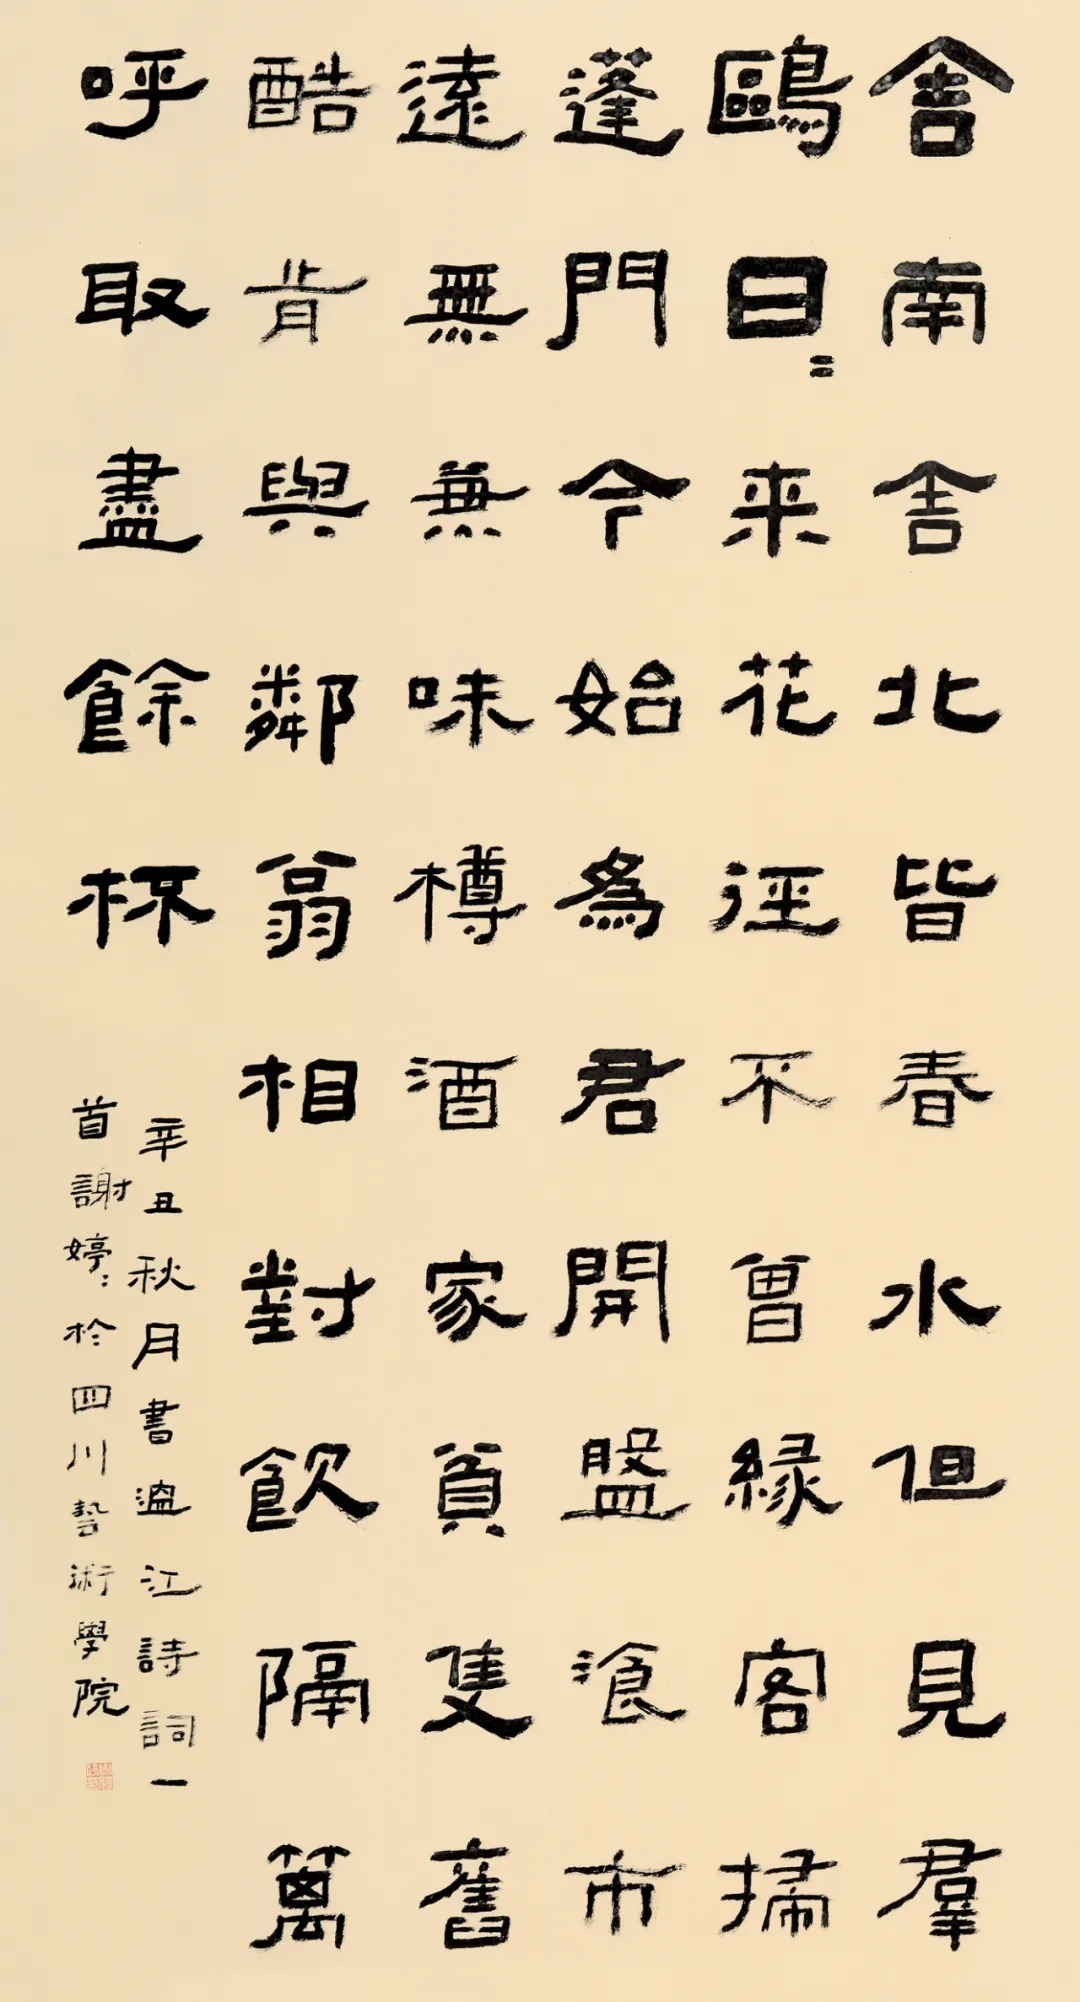 舍南舍北皆春水但見羣
鷗日〻来花徑不曾緣客掃
蓬門今始為君開盤湌市
遠無兼味樽酒家貧隻舊
酷肯與鄰翁相對飲隔篱
呼取盡餘杯
辛丑秋月書温江詩詞一
首謝婷〻於四川藝術學院